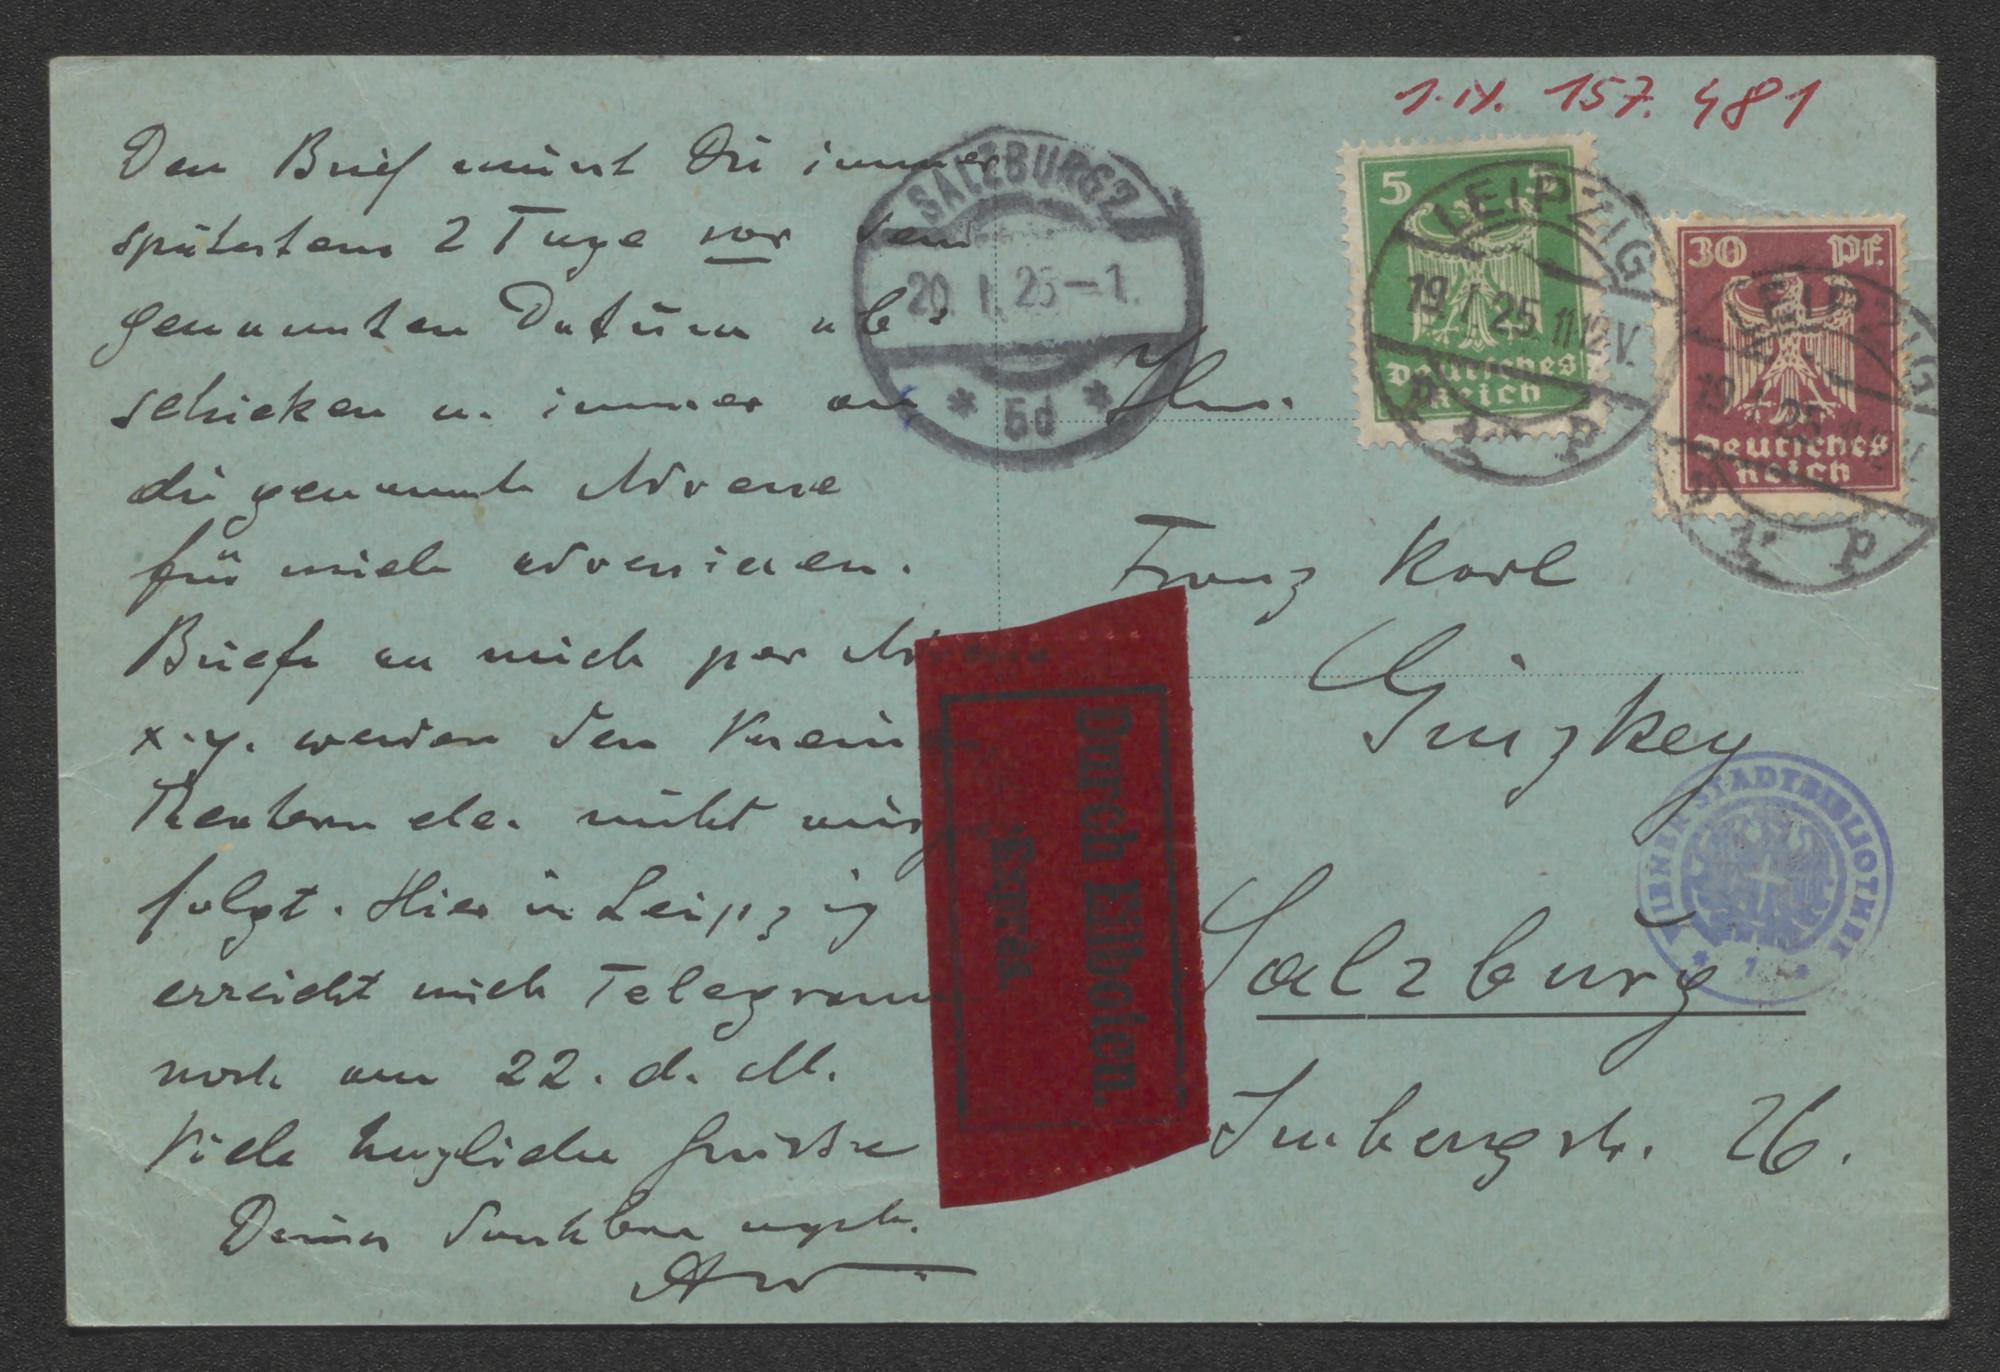 1.IX. 157.481
Den Brief müsst Du immer
spätestens 2 Tage vor dem
genannten Datum ab-
schicken u. immer an
die genannte Adresse
für mich adressieren.
Briefe an mich per Adresse
x.y. werden den Vereinen
Theatern etc. nicht
folgt. Hier in Leipzig
erreicht mich Telegramm
noch am 22. d. M.
Viele herzliche Grüsse
Deines dankbar ergeb.
SALZBURG 2
20. I. 25-1.
* 5d *
5
Deutsches
Reich
30 Pf.
Deutsches
Reich
LEIPZIG
19.1.25.11-12 V.
LEIPZIG
19.1.25
Hrn.
Franz Karl
Ginzkey
Salzburg
Imbergstr. 26.
Durch Eilboten.
Exprès
WIENER STADTBIBLIOTHEK
* 7 *